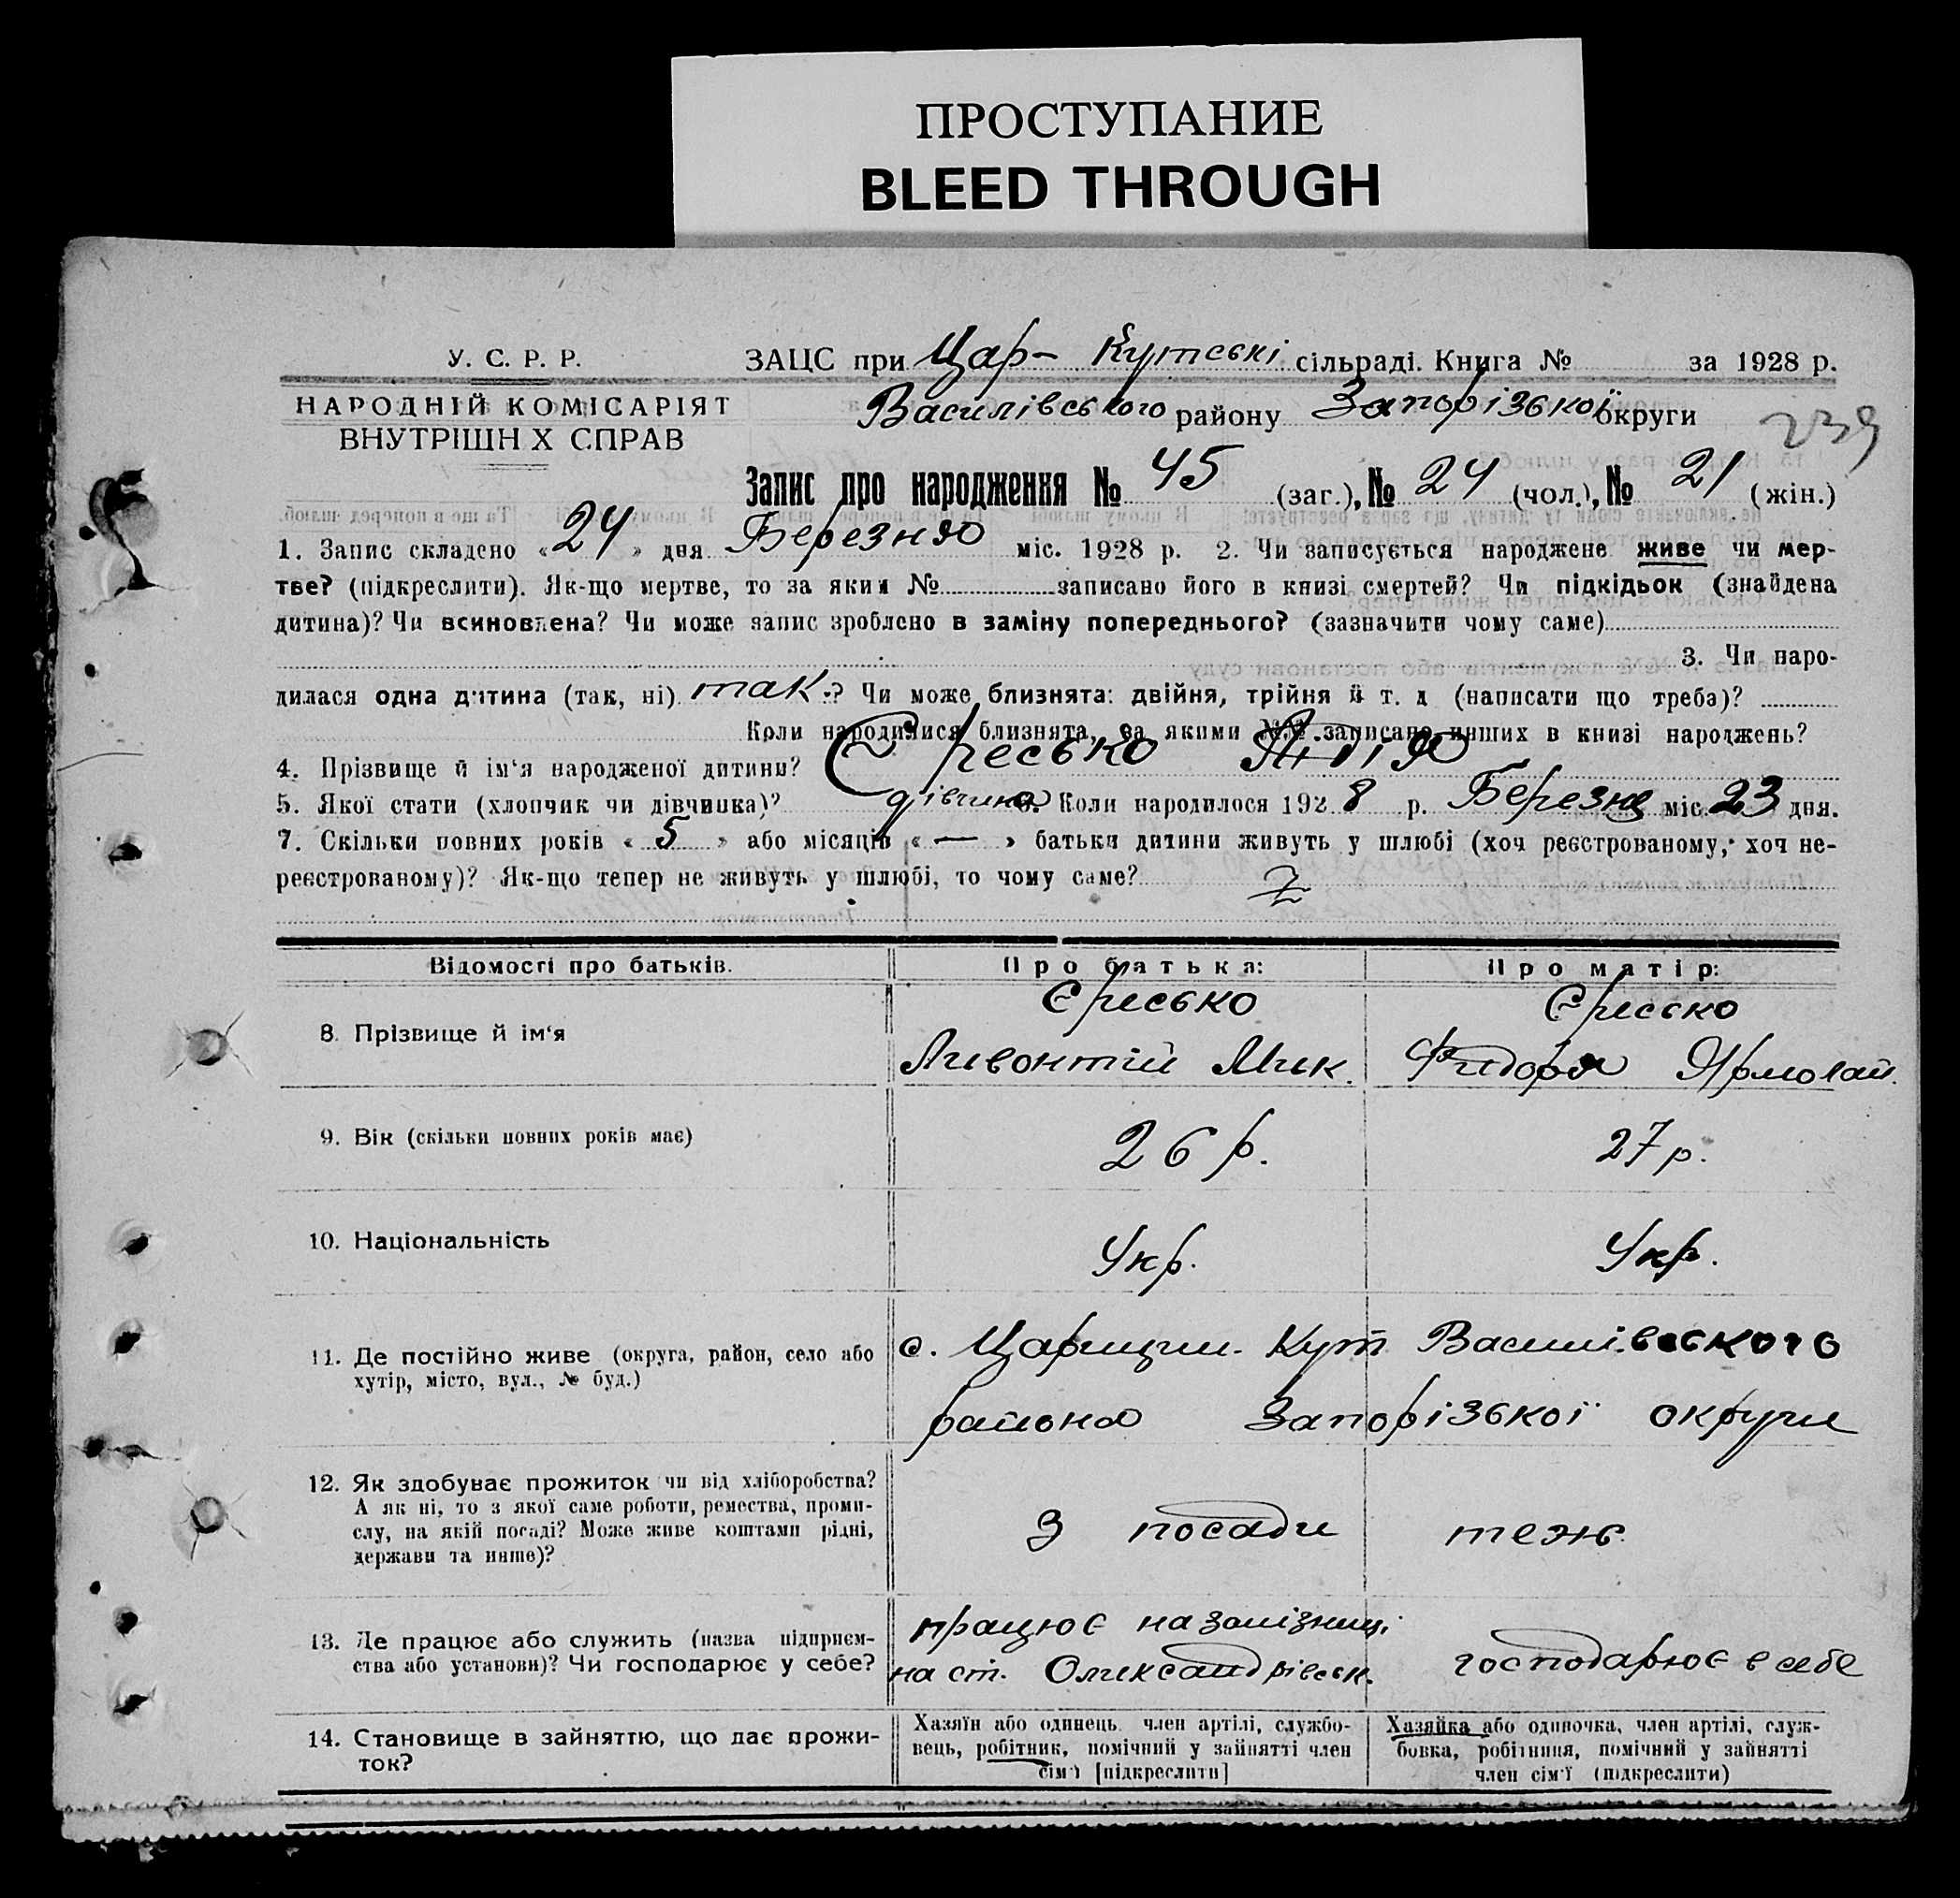 ПРОСТУПАНИЕ
BLEED THROUGH
У. С. Р. Р.
НАРОДНІЙ КОМІСАРІЯТ
ВНУТРІШН Х СПРАВ
ЗАЦС при Цар- Кутські сільраді. Книга № за 1928 р.
Василівського району Запорізької округи
239
Запис про народження № 45 (заг.), № 24 (чол.), № 21 (жін.)
1. Запис складено «24» дня Березня міс. 1928 р. 2. Чи записується народжене живе чи мер-
тве? (підкреслити). Як-що мертве, то за яким № записано його в книзі смертей? Чи підкідьок (знайдена
дитина)? Чи всиновлена? Чи може запис зроблено в заміну попереднього? (зазначити чому саме)
3. Чи наро-
дилася одна дитина (так, ні) так.? Чи може близнята: двійня, трійня й т. д (написати що треба)?
Коли народилися близнята, за якими №№ записано инших в книзі народжень?
4. Прізвище й ім'я народженої дитини? Єресько
5. Якої стати (хлопчик чи дівчинка)? дівчина 6. Коли народилося 1928 р. Березня міс. 23 дня.
7. Скільки повних років «5» або місяців «—» батьки дитини живуть у шлюбі (хоч реєстрованому, хоч не-
реєстрованому)? Як-що тепер не живуть у шлюбі, то чому саме?
Відомості про батьків. Про батька: Про матір:
8. Прізвище й ім'я
Єресько
Ливонтій Мик.
Єресько
Фидора Ярмолай.
9. Вік (скільки повних років має) 26 р. 27 р.
10. Національність Укр. Укр.
11. Де постійно живе (округа, район, село або
хутір, місто, вул., № буд.)
с. Царицин. Кут Василівського
района Запорізької округи
12. Як здобуває прожиток чи від хліборобства?
А як ні, то з якої саме роботи, ремества, проми-
слу, на якій посаді? Може живе коштами рідні,
держави та инше)?
З посади теж
13. Де працює або служить (назва підприєм-
ства або установи)? Чи господарює у себе?
працює на залізниці
на ст. Олександрівськ.
господарює в себе
14. Становище в зайняттю, що дає прожи-
ток?
Хазяїн або одинець член артілі, службо-
вець, робітник, помічний у зайнятті член
сім'ї [підкреслити]
Хазяйка або одиночка, член артілі, служ-
бовка, робітниця, помічний у зайнятті
член сім'ї (підкреслити)